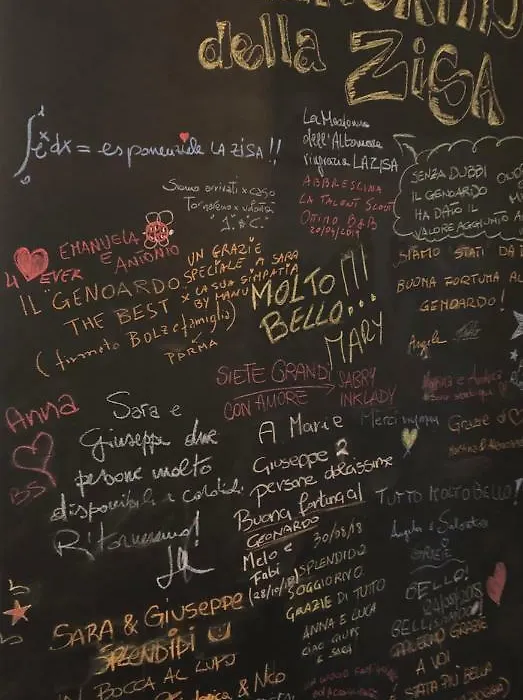 della
ZISA
∫eˣdx = esponenziale LA ZISA !!
La Madonna
dell'Altomare
ringrazia LA ZISA
ABBRESCINA
LA TALENT SCOUT
OTTIMO B&B
20/04/2019
SENZA DUBBI
IL GENOARDO
HA DATO IL
VALORE AGGIUNTO A
Siamo arrivati x caso
Torneremo x volontà
EMANUELA
E
ANTONIO
4
EVER
UN GRAZIE
SPECIALE A SARA
x LA SUA SIMPATIA
BY MANU
IL GENOARDO
THE BEST
(firmato Bolz e famiglia)
PARMA
MOLTO !!!
BELLO...
MARY
SIAMO STATI DA
BUONA FORTUNA AL
GENOARDO!
Angela
SIETE GRANDI
CON AMORE
SABRY
INKLADY
Anna
BS
Sara e
Giuseppe due
persone molto
disponibili e cordiali.
Ritorneremo!
A Marie
Giuseppe 2
persone dolcissime
Buona fortuna al
GEONARDO
Melo e
Fabi
(28/10/18)
Grazie di
TUTTO MOLTO BELLO!
Angela e Salvatore
30/08/18
SPLENDIDO
SOGGIORNO
GRAZIE DI TUTTO
ANNA E LUCA
CIAO GIUPI
E SARA
BELLO!
BELLISSIMO
GRAZIE
A VOI
È STATA PIÙ BELLA
SARA & GIUSEPPE
SPLENDIDI
IN BOCCA AL LUPO
& Nico